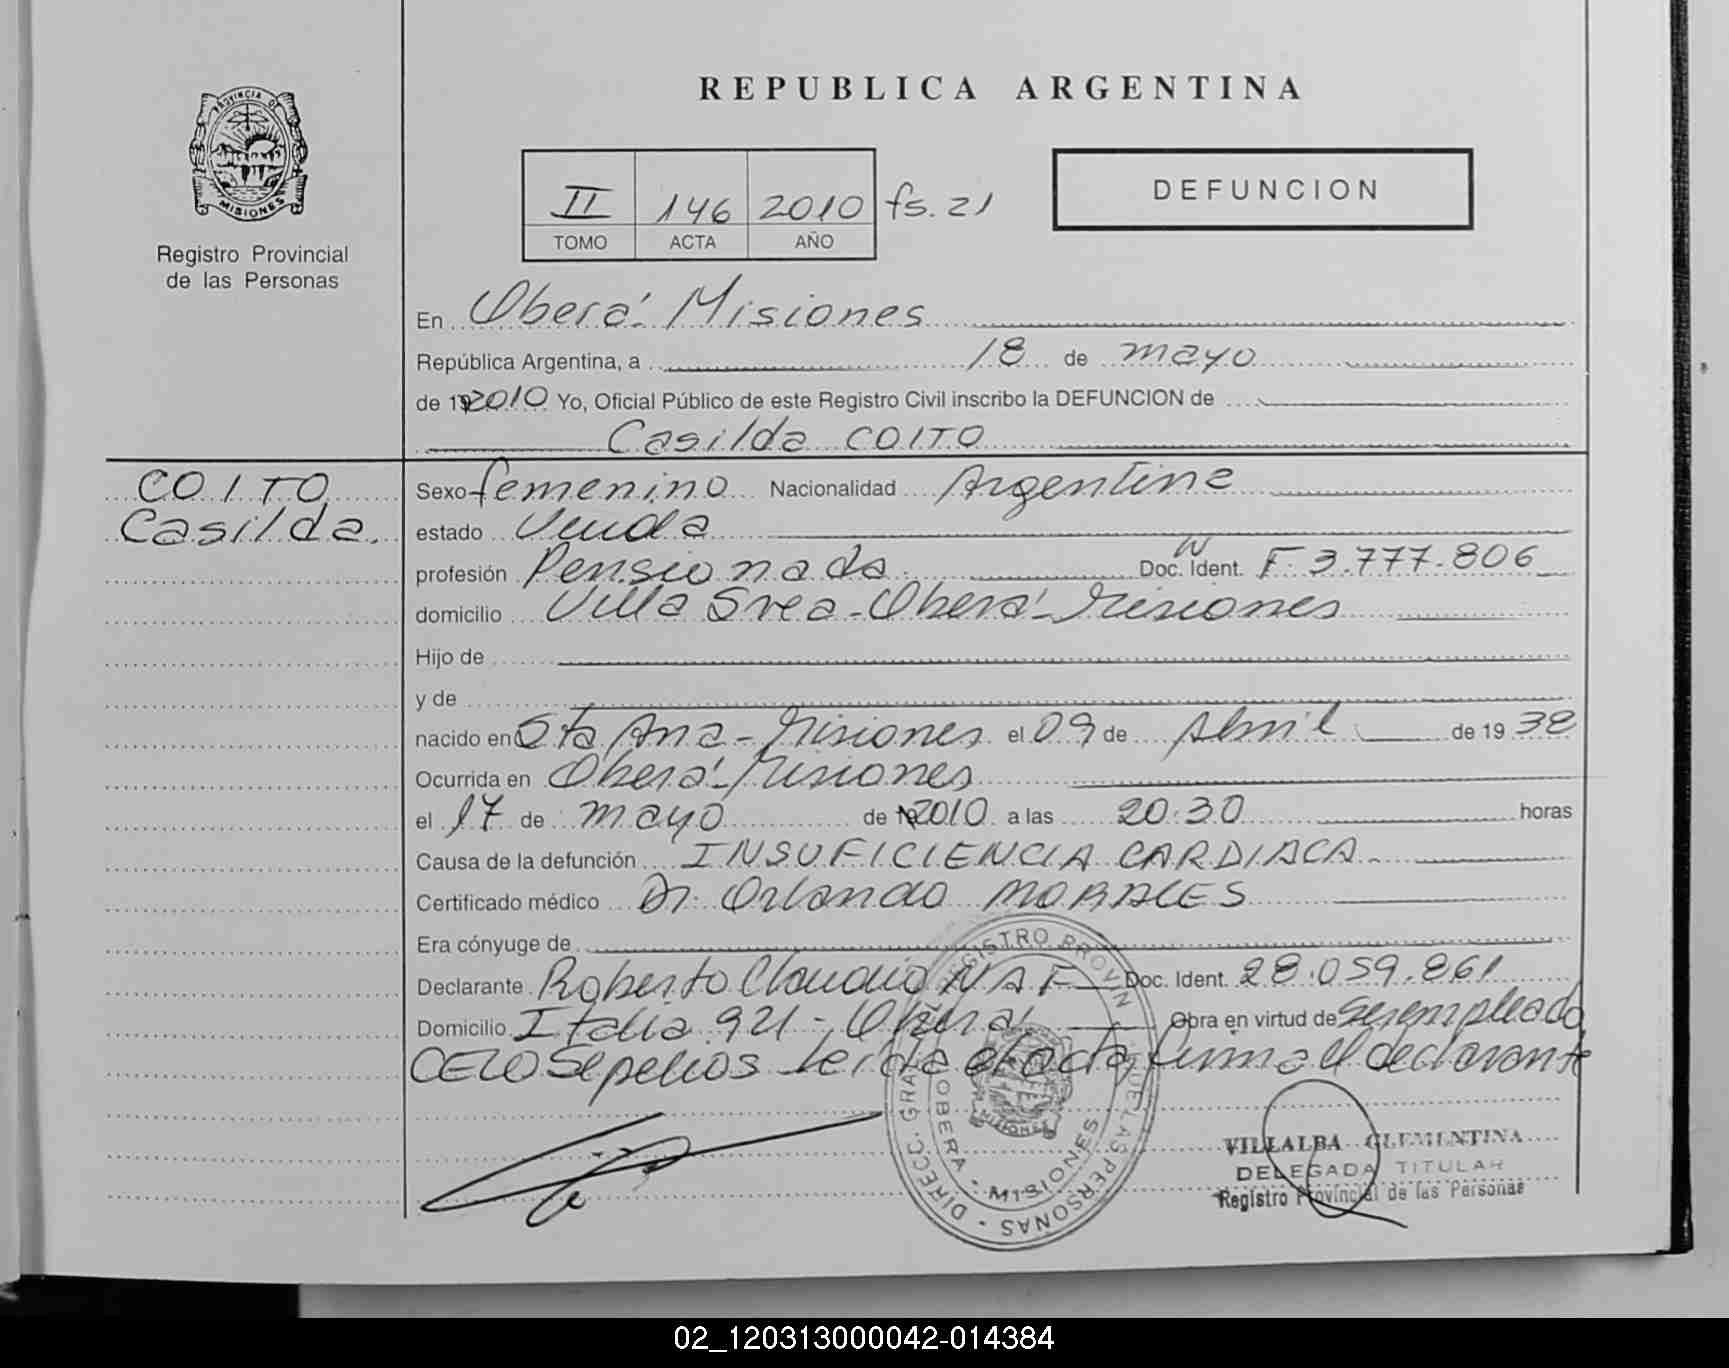 REPUBLICA ARGENTINA
PROVINCIA DE
MISIONES
Registro Provincial
de las Personas
II 146 2010 fs. 21
TOMO ACTA AÑO
DEFUNCION
En Oberá Misiones
República Argentina, a 18 de mayo
de 19 2010 Yo, Oficial Público de este Registro Civil inscribo la DEFUNCION de
Casilda COITO
COITO
Casilda.
Sexo femenino Nacionalidad Argentina
estado Viuda
profesión Pensionada Doc. Ident. F 3.777.806
domicilio Villa Svea - Oberá - Misiones
Hijo de
y de
nacido en Sta Ana - Misiones el 09 de Abril de 19 38
Ocurrida en Oberá - Misiones
el 17 de mayo de 2010 a las 20:30 horas
Causa de la defunción INSUFICIENCIA CARDIACA
Certificado médico Dr. Orlando MORALES
Era cónyuge de
Declarante Roberto Claudio NAF Doc. Ident. 28.059.861
Domicilio Italia 921 - Oberá Obra en virtud de ser empleado
CELO Sepelios leída el acta, firma el declarante
DIRECC. GRAL. REGISTRO PROVIN. DE LAS PERSONAS
OBERA - MISIONES
MISIONES
VILLALBA CLEMENTINA
DELEGADA TITULAR
Registro Provincial de las Personas
02_120313000042-014384